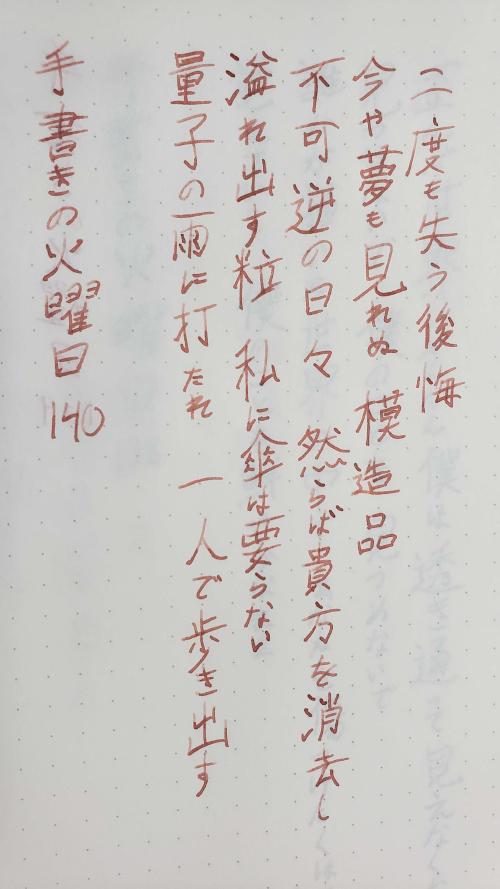 二度も失う後悔
今や夢も見れぬ 模造品
不可逆の日々 然らば貴方を消去し
溢れ出す粒 私に傘は要らない
量子の雨に打たれ 一人で歩き出す
手書きの火曜日 140